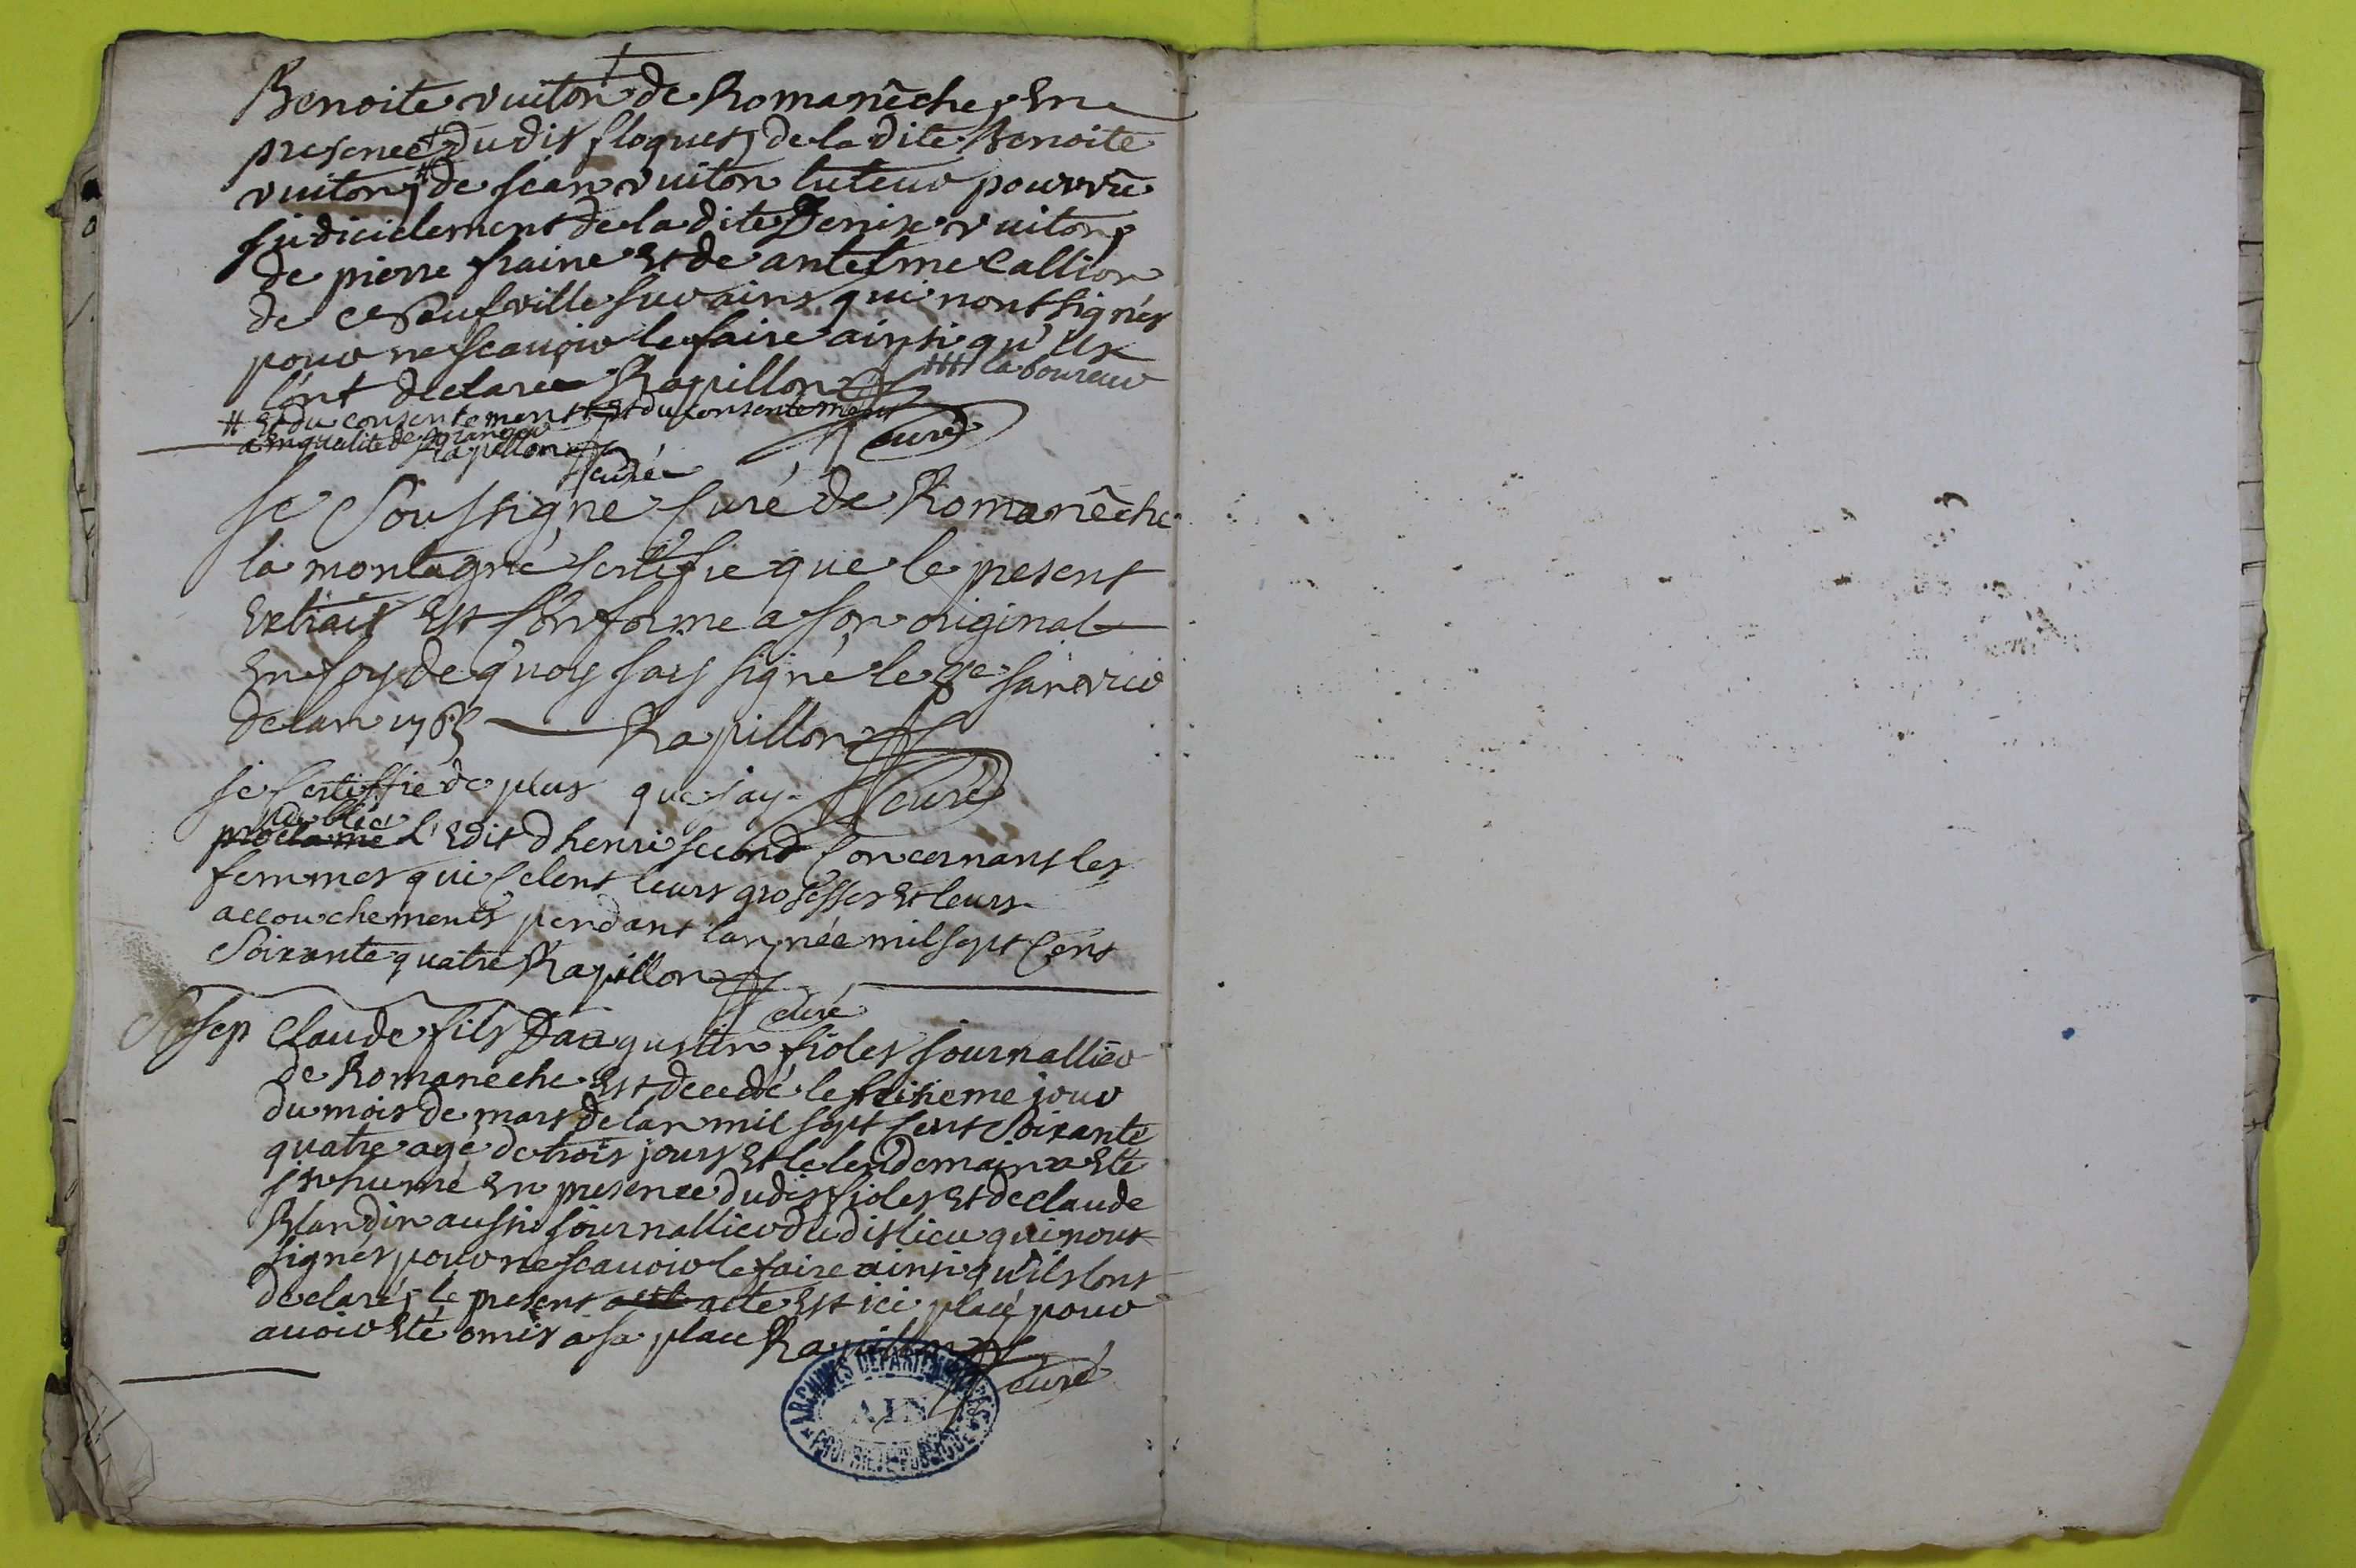 Benoite vuiton de Romanêche, En
presence dudit floquet, de la dite Benoite
vuiton, # de jean vuiton tuteur pourvû
judiciellement de la dite Denise vuiton,
de pierre fraine Et de antelme callion
de Neufville sur ains qui n'ont signés
pour ne scavoir le faire ainsi qu'ils
l'ont declaré Rapillon
++++ laboureur
curé
# Et du consentement Et du consentement
a En qualité de
Rapillon
curé
Je Soussigné Curé de Romanêche
la montagne certifie que le present
Extrait Est Conforme a son original
En foy de quoy j'ay signé le janvier
de l'an 1765 Rapillon
curé
je Certiffie de plus que j'ay
publié
proclamé L'Edit d'henri second Concernant les
femmes qui Celent leurs grosesses Et leurs
accouchements pendant l'année mil sept Cent
Soixante quatre Rapillon
curé
Claude fils D'augustin fiolet journallier
de Romanêche Est decedé le seisieme jour
du mois de mars de l'an mil sept Cent Soixante
quatre agé de trois jours Et le lendemain a Eté
inhumé En presence dudit fiolet Et de claude
Blandin aussi journallier dudit lieu qui n'ont
signés pour ne scavoir le faire ainsi qu'ils l'ont
declaré, le present acte acte Est ici placé pour
avoir Eté omis a sa place Rapillon
curé
ARCHIVES DEPARTEMENTALES
AIN
PROPRIETE PUBLIQUE